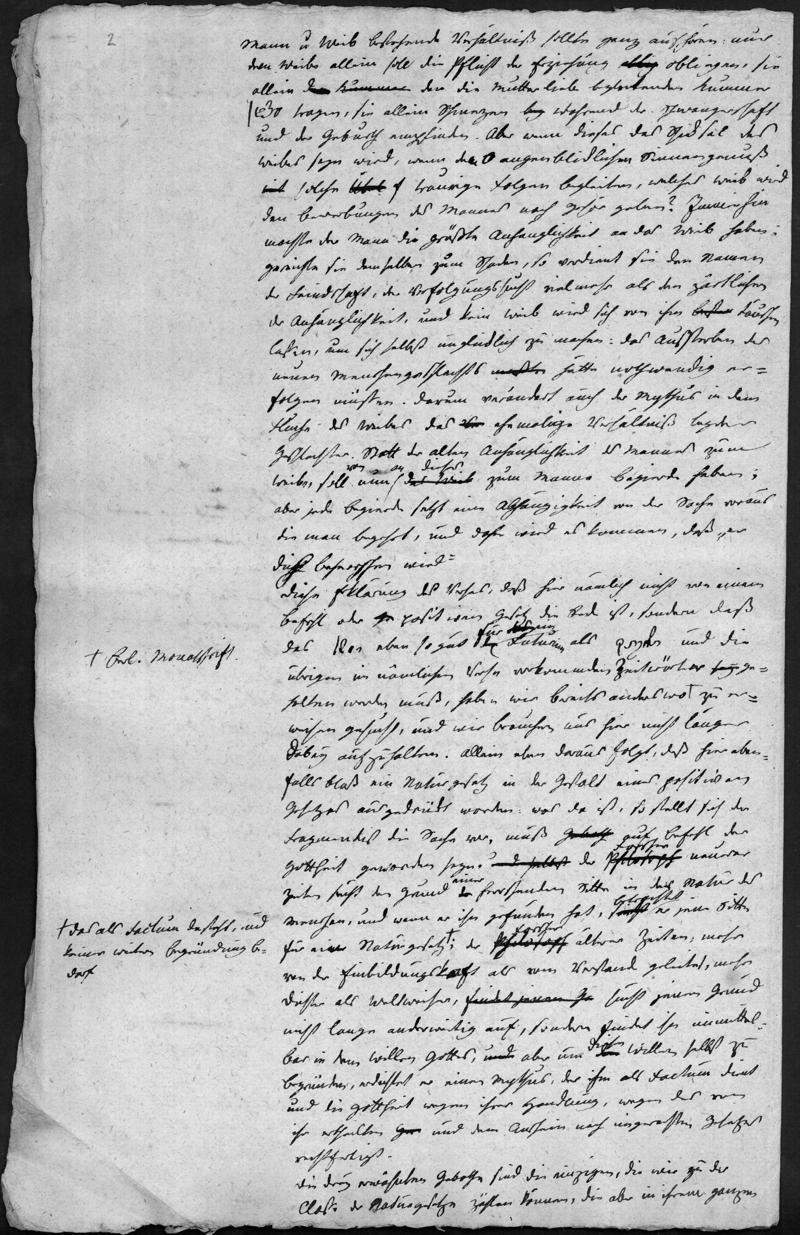 2
Mann u Weib bestehende Verhältniß sollte ganz aufhören: nur
dem Weibe allein soll die Pflicht der Erziehung obliegen, sie
allein den die Mutterliebe begleitenden Kummer
tragen, sie allein Schmerzen während der Schwangerschaft
und der Geburth empfinden. Aber wenn dieses das Schicksal des
Weibes seyn wird, wenn den augenblicklichen Sinnengenuß
solche traurige Folgen begleiten, welches Weib wird
den Bewerbungen des Mannes noch Gehör geben? Immerhin
mochte der Mann die größte Anhänglichkeit an das Weib haben:
gereichte sie demselben zum Schaden, so verdient sie den Namen
der Feindschaft, der Verfolgungssucht vielmehr als den zärtlichen
der Anhänglichkeit, und kein Weib wird sich von ihm täuschen
laßen, um sich selbst unglücklich zu machen: das Aussterben des
neuen Menschengeschlechts hätte nothwendig er=
folgen müssen. Darum verändert auch der Mythus in dem
Fluche des Weibes das ehemalige Verhältniß beyder
Geschlechter. Statt der alten Anhänglichkeit des Mannes zum
Weibe, soll nun dieses zum Manne Begierde haben;
aber jede Begierde setzt eine Abhängigkeit von der Sache voraus
die man begehrt, und daher wird es kommen, daß „er
dich beherrschen wird“
Diese Erklärung des Verses, daß hier nämlich nicht von einem
Befehl oder positiven Gesetz die Rede ist, sondern daß
das eben so gut für Futurum als und die
† Berl. Monatsschrift.
übrigen im nämlichen Verse vorkommenden Zeitwörter ge=
halten werden muß, haben wir bereits anderswo† zu er=
weisen gesucht, und wir brauchen uns hier nicht länger
dabey aufzuhalten. Allein eben daraus folgt, daß hier eben=
falls bloß ein Naturgesetz in der Gestalt eines positiven
Gesetzes ausgedrückt worden: was da ist, so stellt sich der
Fragmentist die Sache vor, muß auf Befehl der
Gottheit geworden seyn. der Forscher neuerer
Zeiten sucht den Grund einer herrschenden Sitte in der Natur des
Menschen, und wenn er ihn gefunden hat, er jene Sitte
† das als Factum dasteht, und
keiner weitern Begründung be=
darf
für ein Naturgesetz†; der Forscher älterer Zeiten, mehr
von der Einbildungskraft als vom Verstand geleitet, mehr
Dichter als Weltweiser, sucht jenen Grund
nicht lange anderwärtig auf, sondern findet ihn unmittel=
bar in dem Willen Gottes, aber um diesen Willen selbst zu
begründen, erdichtet er einen Mythus, der ihm als Factum dient
und die Gottheit wegen ihrer Handlung, wegen des von
ihr ertheilten und dem Anschein nach ungerechten Gesetzes
rechtfertigt.
Die drey erwähnten Gebothe sind die einzigen, die wir zu der
Classe der Naturgesetze zählen können, die aber in ihrem ganzen